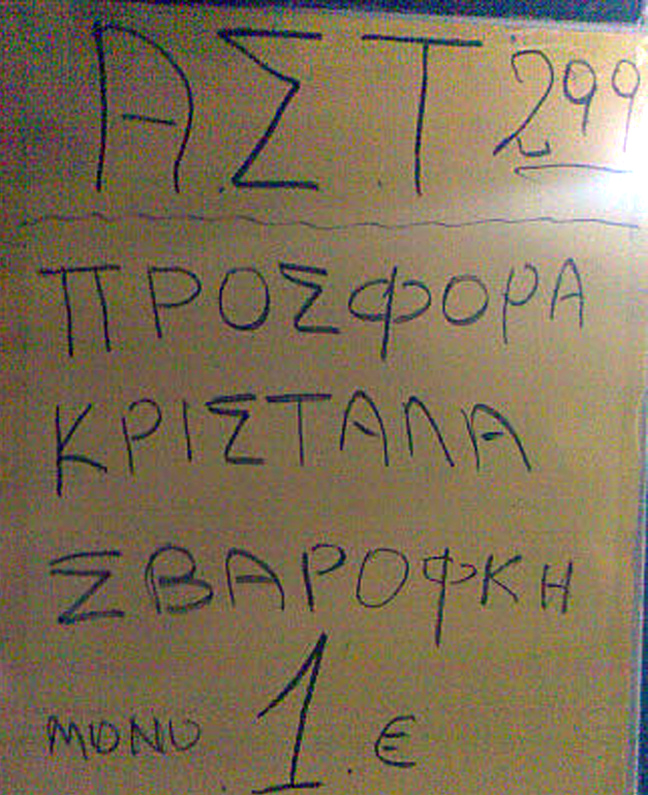 ΑΣΤ 299
ΠΡΟΣΦΟΡΑ
ΚΡΙΣΤΑΛΑ
ΣΒΑΡΟΦΚΗ
ΜΟΝΟ 1 €